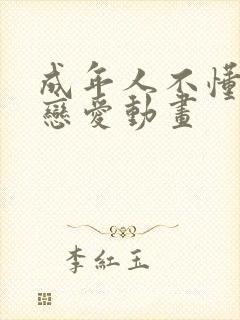 成年人不懂
戀愛動畫
李紅玉